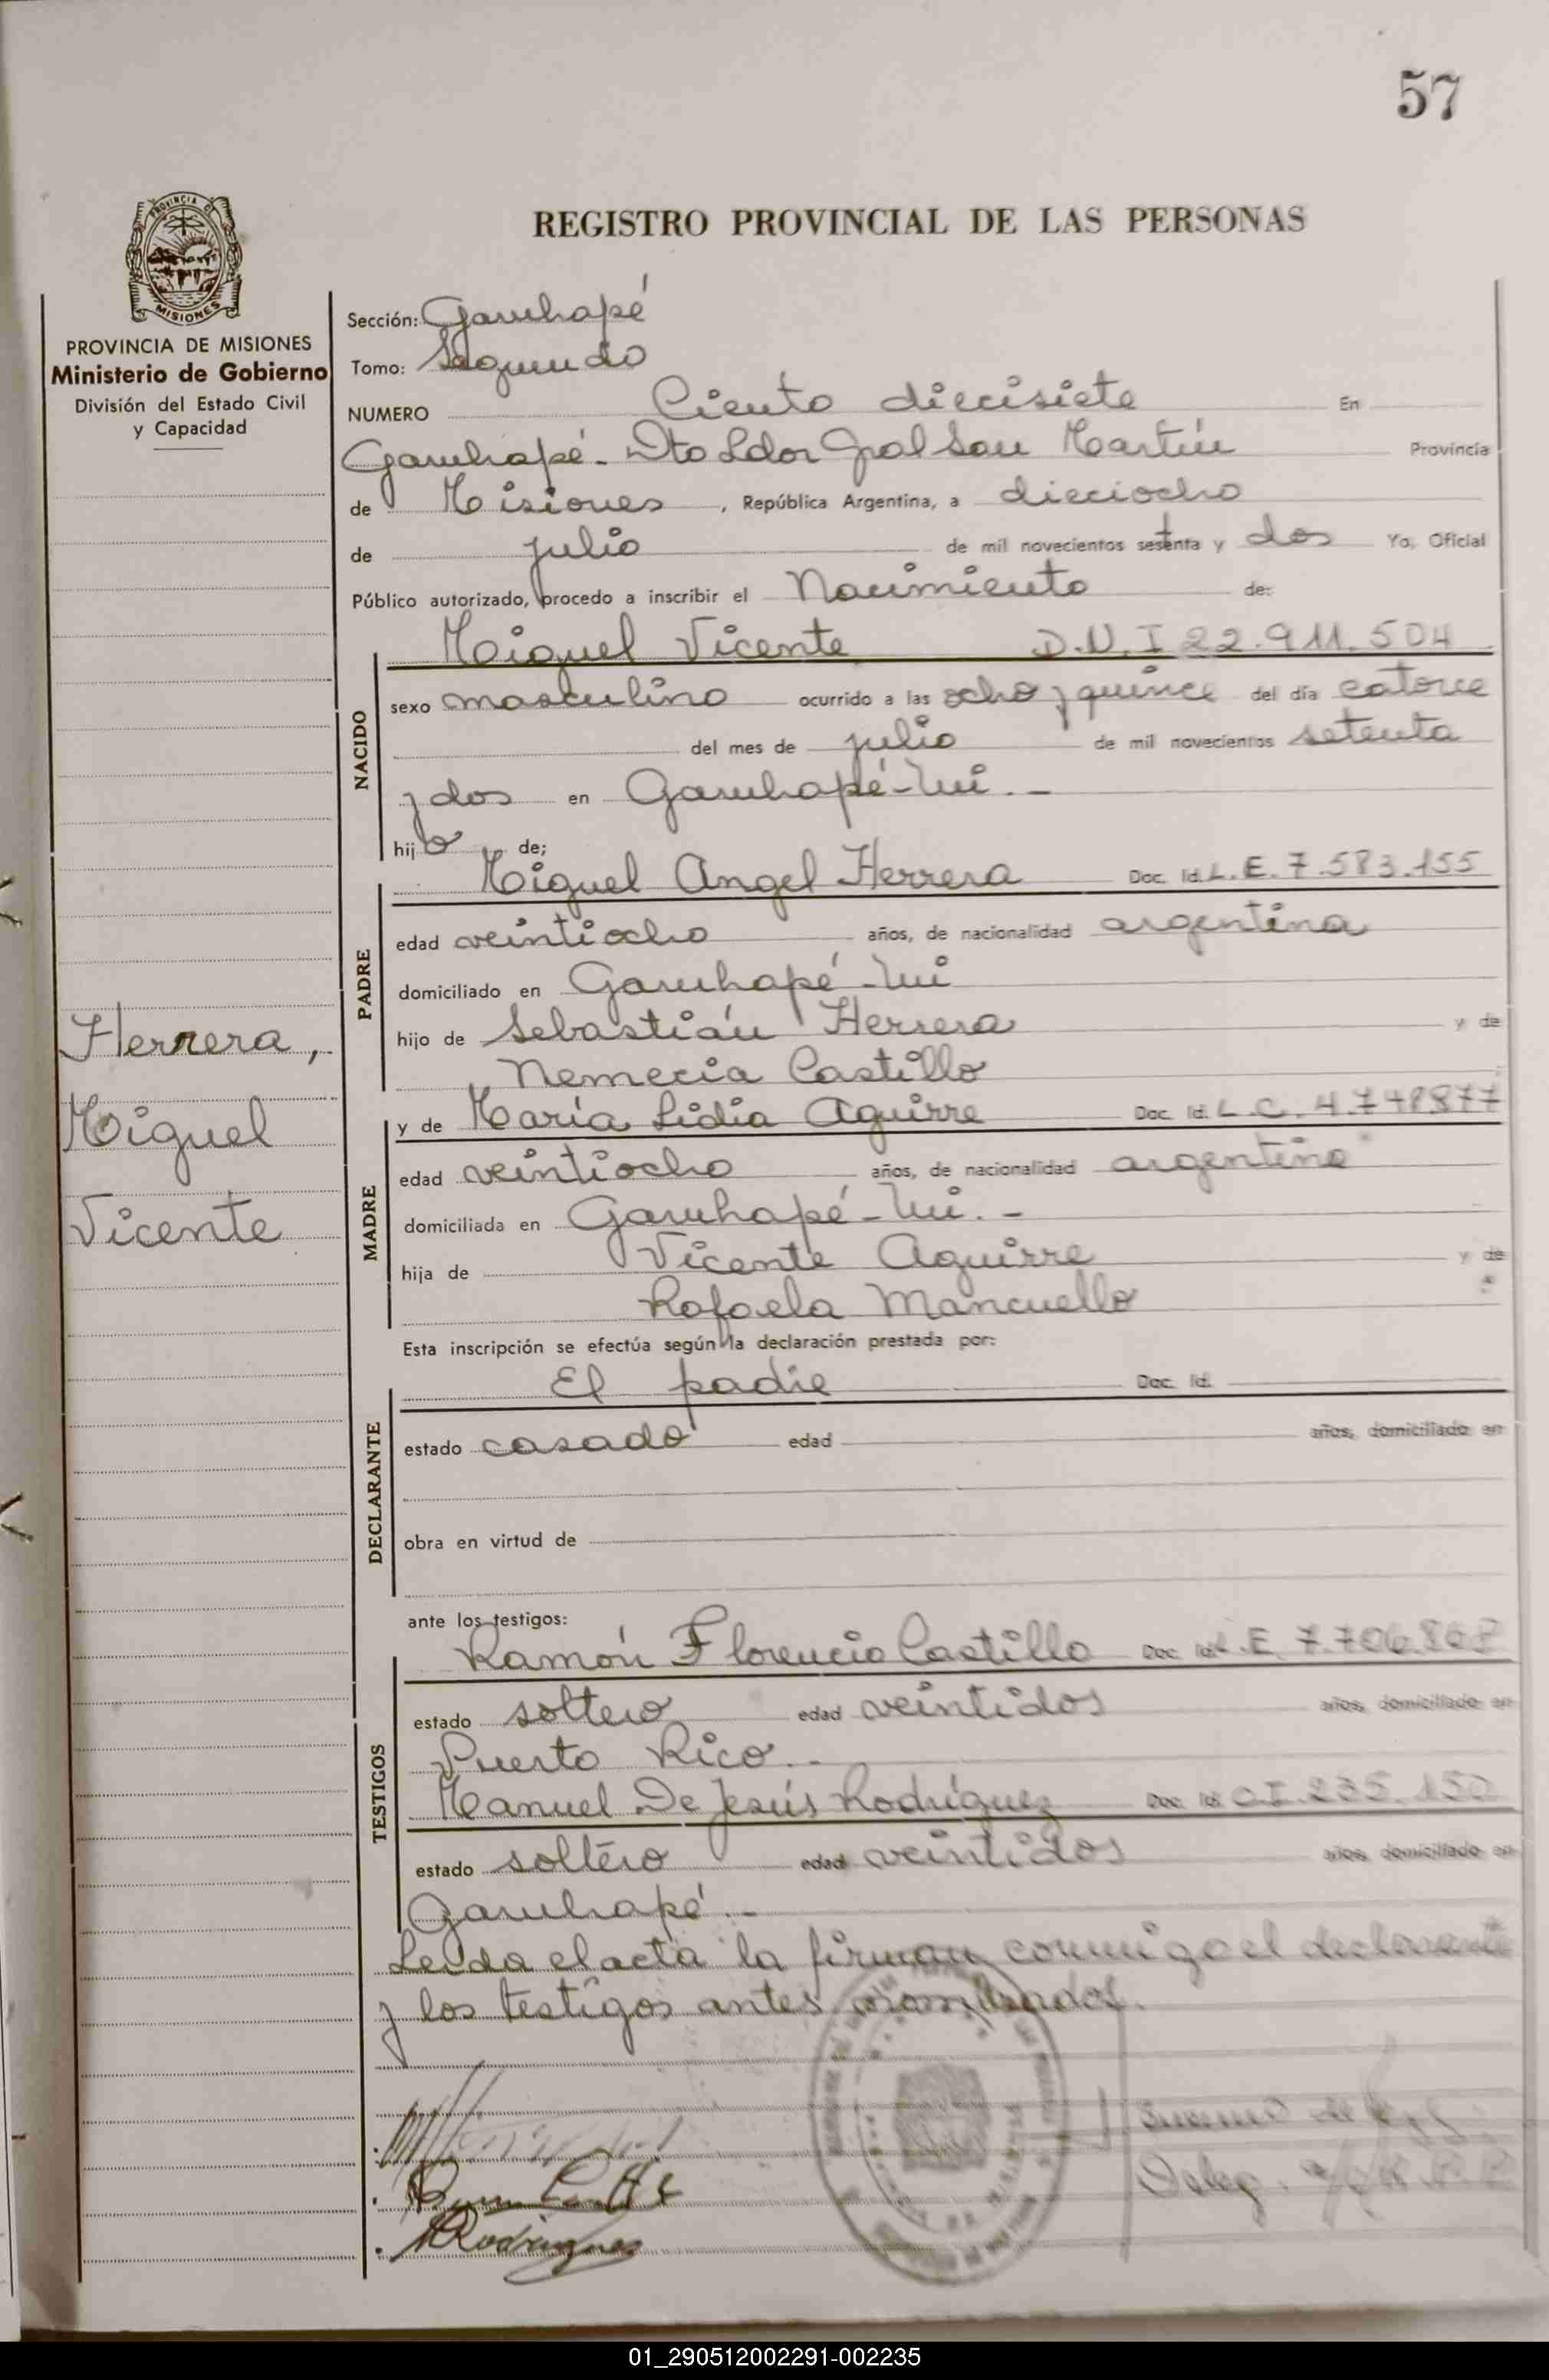 57
PROVINCIA DE
MISIONES
REGISTRO PROVINCIAL DE LAS PERSONAS
PROVINCIA DE MISIONES
Ministerio de Gobierno
División del Estado Civil
y Capacidad
Herrera,
Miguel
Vicente
Sección: Garuhapé
Tomo: Segundo
NUMERO Ciento diecisiete En
Garuhapé - Dto Ldor Gral San Martín Provincia
de Misiones, República Argentina, a dieciocho
de julio de mil novecientos setenta y dos Yo, Oficial
Público autorizado, procedo a inscribir el Nacimiento de:
NACIDO
Miguel Vicente D.N.I 22.911.504
sexo masculino ocurrido a las ocho y quince del día catorce
del mes de julio de mil novecientos setenta
y dos en Garuhapé-Mi.-
hijo de;
PADRE
Miguel Angel Herrera Doc. Id. L.E. 7.583.155
edad veintiocho años, de nacionalidad argentina
domiciliado en Garuhapé-Mi
hijo de Sebastián Herrera y de
Nemecia Castillo
MADRE
y de María Lidia Aguirre Doc. Id. L.C. 4.748877
edad veintiocho años, de nacionalidad argentina
domiciliada en Garuhapé-Mi.-
hija de Vicente Aguirre y de
Rafaela Mancuello
Esta inscripción se efectúa según la declaración prestada por:
DECLARANTE
El padre Doc. Id.
estado casado edad años, domiciliado en
obra en virtud de
ante los testigos:
TESTIGOS
Ramón Florencio Castillo Doc. Id. L.E. 7.706.868
estado soltero edad veintidos años, domiciliado en
Puerto Rico.-
Manuel De Jesús Rodríguez Doc. Id. C.I. 235.150
estado soltero edad veintidos años, domiciliado en
Garuhapé.-
Leída el acta la firman conmigo el declarante
y los testigos antes nombrados.
Rodriguez
01_290512002291-002235